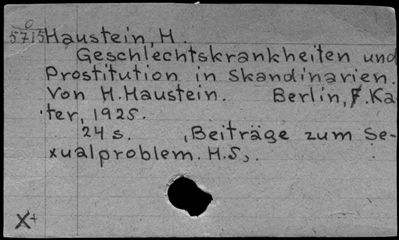 o
5715 Haustein, H.
Geschlechtskrankheiten und
Prostitution in Skandinavien.
Von H. Haustein. Berlin, F. Ka
ter, 1925.
24 s. , Beiträge zum Se-
xualproblem. H.5,.
X+